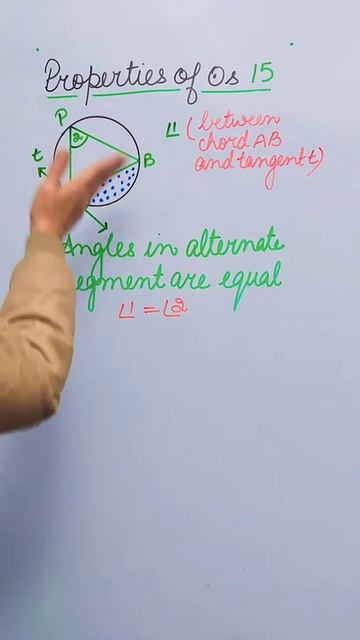 Properties of Os 15
P
2
t
B
∠1 (between
chord AB
and tangent t)
Angles in alternate
segment are equal
∠1 = ∠2